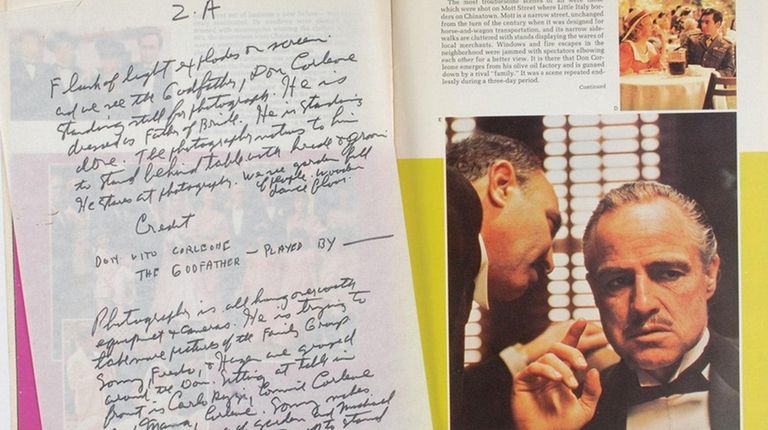 2.A
Flash of light explodes on screen.
and we see the Godfather, Don Corleone
standing still for photograph. He is
dressed as Father of Bride. He is standing
alone. The photographer motions to him
to stand behind table with bride & groom
He stares at photographer. We see garden full
of people. wooden
dance floor.
Credit
DON VITO CORLEONE
THE GODFATHER — PLAYED BY ———
Photographer is all hung over with
equipment & cameras. He is trying to
take more pictures of the Family Group
Sonny, Fredo, & Hagen are grouped
around the Don. Sitting at table in
front is Carlo Rizzi, Connie Corleone
Mama Corleone. Sonny makes
garden and Michael
to stand
which were shot on Mott Street where Little Italy bor-
ders on Chinatown. Mott is a narrow street, unchanged
from the turn of the century when it was designed for
horse-and-wagon transportation, and its narrow side-
walks are cluttered with stands displaying the wares of
local merchants. Windows and fire escapes in the
neighborhood were jammed with spectators elbowing
each other for a better view. It is there that Don Cor-
leone emerges from his olive oil factory and is gunned
down by a rival "family." It was a scene repeated end-
lessly during a three-day period.
Continued
D
E